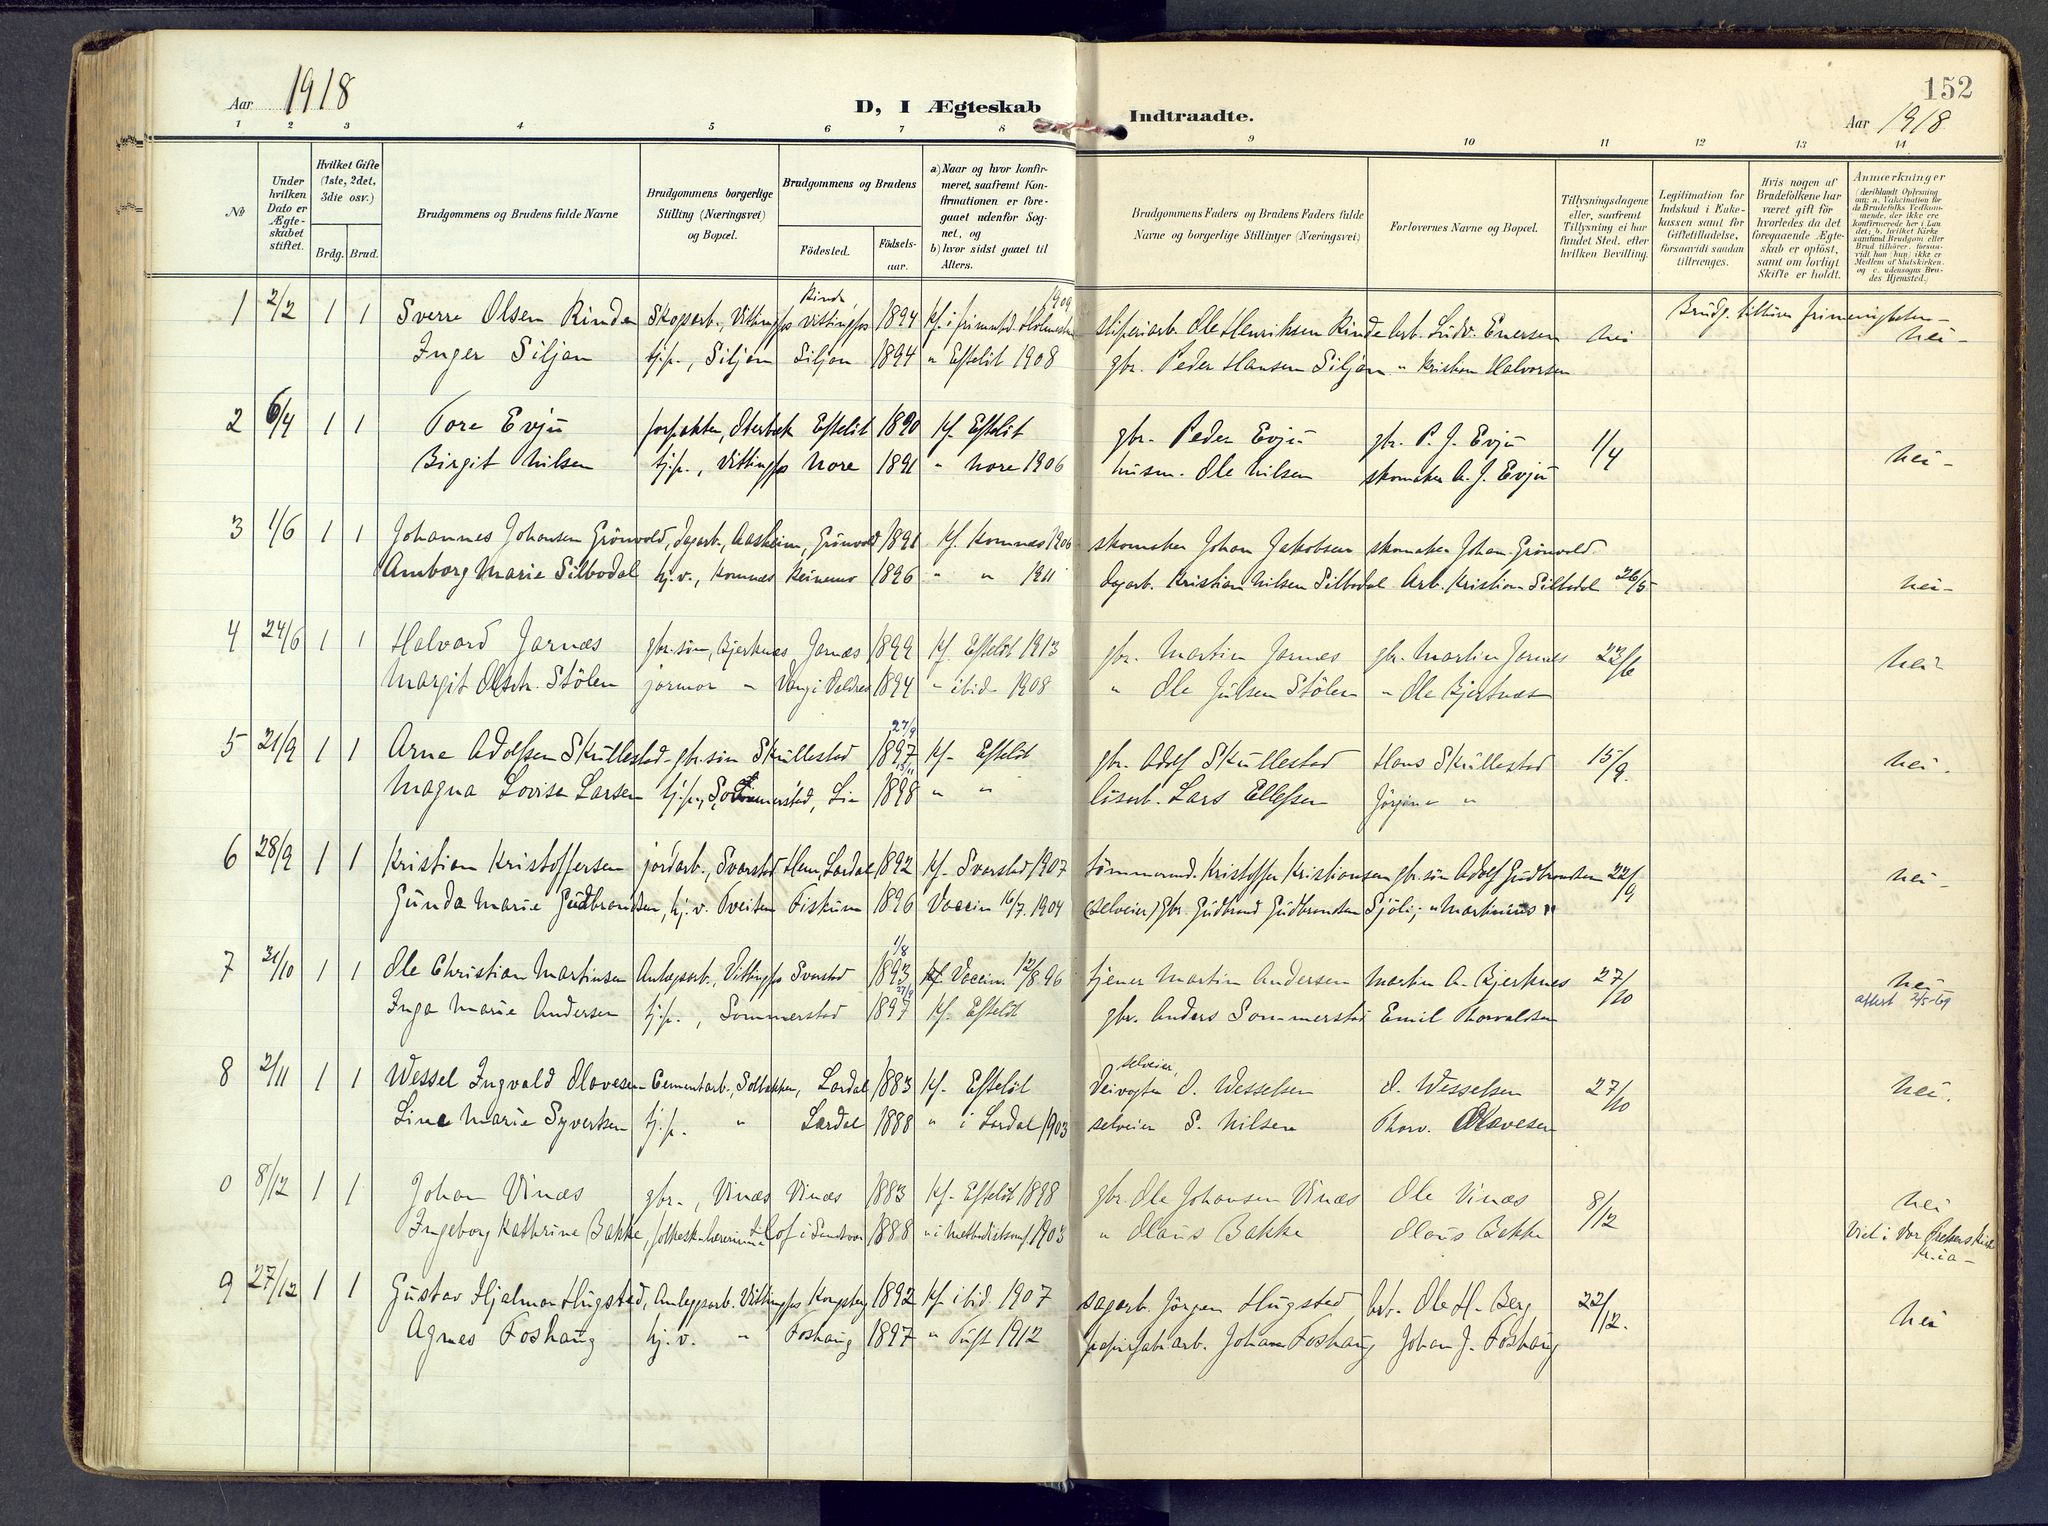 152
Aar 1918 D, I Ægteskab Indtraadte. Aar 1918
1 2 3 4 5 6 7 8 9 10 11 12 13 14
No
Under hvilken Dato er Ægteskabet stiftet.
Hvilket Gifte (1ste, 2det, 3die osv.)
Brdg. Brud.
Brudgommens og Brudens fulde Navne
Brudgommens borgerlige Stilling (Næringsvei) og Bopæl.
Brudgommens og Brudens
Födested. Födselsaar.
a) Naar og hvor konfirmeret, saafremt Konfirmationen er foregaaet udenfor Sognet, og
b) hvor sidst gaaet til Alters.
Brudgommens Faders og Brudens Faders fulde Navne og borgerlige Stillinger (Næringsvei)
Forlovernes Navne og Bopæl.
Tillysningsdagene eller, saafremt Tillysning ei har fundet Sted, efter hvilken Bevilling.
Legitimation for Indskud i Enkekassen samt for Giftetilladelse, forsaavidt saadan tiltrænges.
Hvis nogen af Brudefolkene har været gift för hvorledes da det foregaaende Ægteskab er oplöst, samt om lovligt Skifte er holdt.
Anmærkninger (deriblandt Oplysning om: a. Vakcination for de Brudefolks Vedkommende, der ikke ere konfirmerede her i Landet; b. hvilket Kirkesamfund Brudgom eller Brud tilhörer, forsaavidt han (hun) ikke er Medlem af Statskirken, og c. udensogns Brudes Hjemsted.
1 2/2 1 1 Sverre Olsen Rinde Skogarb., Vittingfos Rinde, Vittingfos 1894 kf. i frimenighed Holmestr. 1909 sliperiarb. Ole Henriksen Rinde Arb. Ludv. Enersen nei Brudg. tilhører frimenigheten nei
Inger Siljan tj.p., Siljan Siljan 1894 " Efteløt 1908 gbr. Peder Hansen Siljan " Kristian Halvorsen
2 6/4 1 1 Tore Evju forpakter, Oterbæk Efteløt 1890 kf. Efteløt gbr. Peder Evju gbr. P. J. Evju 1/4 nei
Birgit Nilsen tj.p., Vittingfos Nore 1891 " Nore 1906 husm. Ole Nilsen skomaker A. J. Evju
3 1/6 1 1 Johannes Johansen Grönvold, dagarb., Aasheim, Grönvold 1891 kf. Komnes 1906 skomaker Johan Jakobsen skomaker Johan Grönvold
Amborg Marie Silbodal hj.v., Komnes Reinemo 1896 " " 1911 dagarb. Kristian Nilsen Silbodal Arb. Kristian Silbodal 26/5 nei
4 24/6 1 1 Halvard Jarnæs gbr.søn, Bjerknes Jarnæs 1899 kf. Efteløt 1913 gbr. Martin Jarnes gbr. Martin Jarnes 23/6 nei
Margit Olsdtr. Stölen jormor " Vang i Valdres 1894 " ibid 1908 " Ole Julsen Stölen " Ole Bjerknæs
5 21/9 1 1 Arne Adolfsen Skullestad gbr.søn Skullestad 27/9 1897 kf. Efteløt gbr. Adolf Skullestad Hans Skullestad 15/9. nei.
Magna Lovise Larsen tj.p., Sommerstad, Lia 15/11 1898 " " løsarb. Lars Ellefsen Jörgine "
6 28/9 1 1 Kristian Kristoffersen jordarb., Svarstad Hem, Lardal 1892 kf. Svarstad 1907 tømmermd. Kristoffer Kristiansen gbr.søn Adolf Gudbrandsen 22/9 nei
Gunda Marie Gudbrandsen, hj.v. Tveiten Fiskum 1896 Vaccin 16/7 1904 (selveier) gbr. Gudbrand Gudbrandsen Sjöli; " Martinius "
7 31/10 1 1 Ole Christian Martinsen Anlægsarb., Vittingfos Svarstad 1/8 1893 Vaccin. 12/8 96 tjener Martin Andersen Martin A. Bjerknes 27/10 nei attest 2/5-69
Inga Marie Andersen tj.p., Sommerstad 27/9 1897 kf. Efteløt gbr. Anders Sommerstad Emil Thorvaldsen
8 2/11 1 1 Wessel Ingvald Olavesen Cementarb., Solbakken, Lardal 1883 kf. Efteløt selveier, Veivogter O. Wesselsen O. Wesselsen 27/10 nei.
Line Marie Syvertsen tj.p. " Lardal 1888 " i Lardal 1903 selveier S. Nilsen Thorv. Olavesen
0 8/12 1 1 Johan Vinæs gbr., Vinæs Vinæs 1883 kf. Efteløt 1898 gbr. Ole Johansen Vinæs Ole Vinæs 8/12 nei
Ingeborg Kathrine Bakke, folkeskolelærerinde i Sandsvær 1888 " i Methodistsamf. 1903 " Olaus Bakke Olaus Bakke Viet i Vor Frelsers Kirke Kr.ia
9 27/12 1 1 Gustav Hjalmar Hugsted, Anlegsarb. Vittingfos Kongsberg 1892 kf. ibid 1907 sagarb. Jörgen Hugsted bst. Ole H. Berg 22/12. nei
Agnes Foshaug hj.v. " Foshaug 1897 " Tuft 1912 papirfabr.arb. Johan Foshaug Johan J. Foshaug